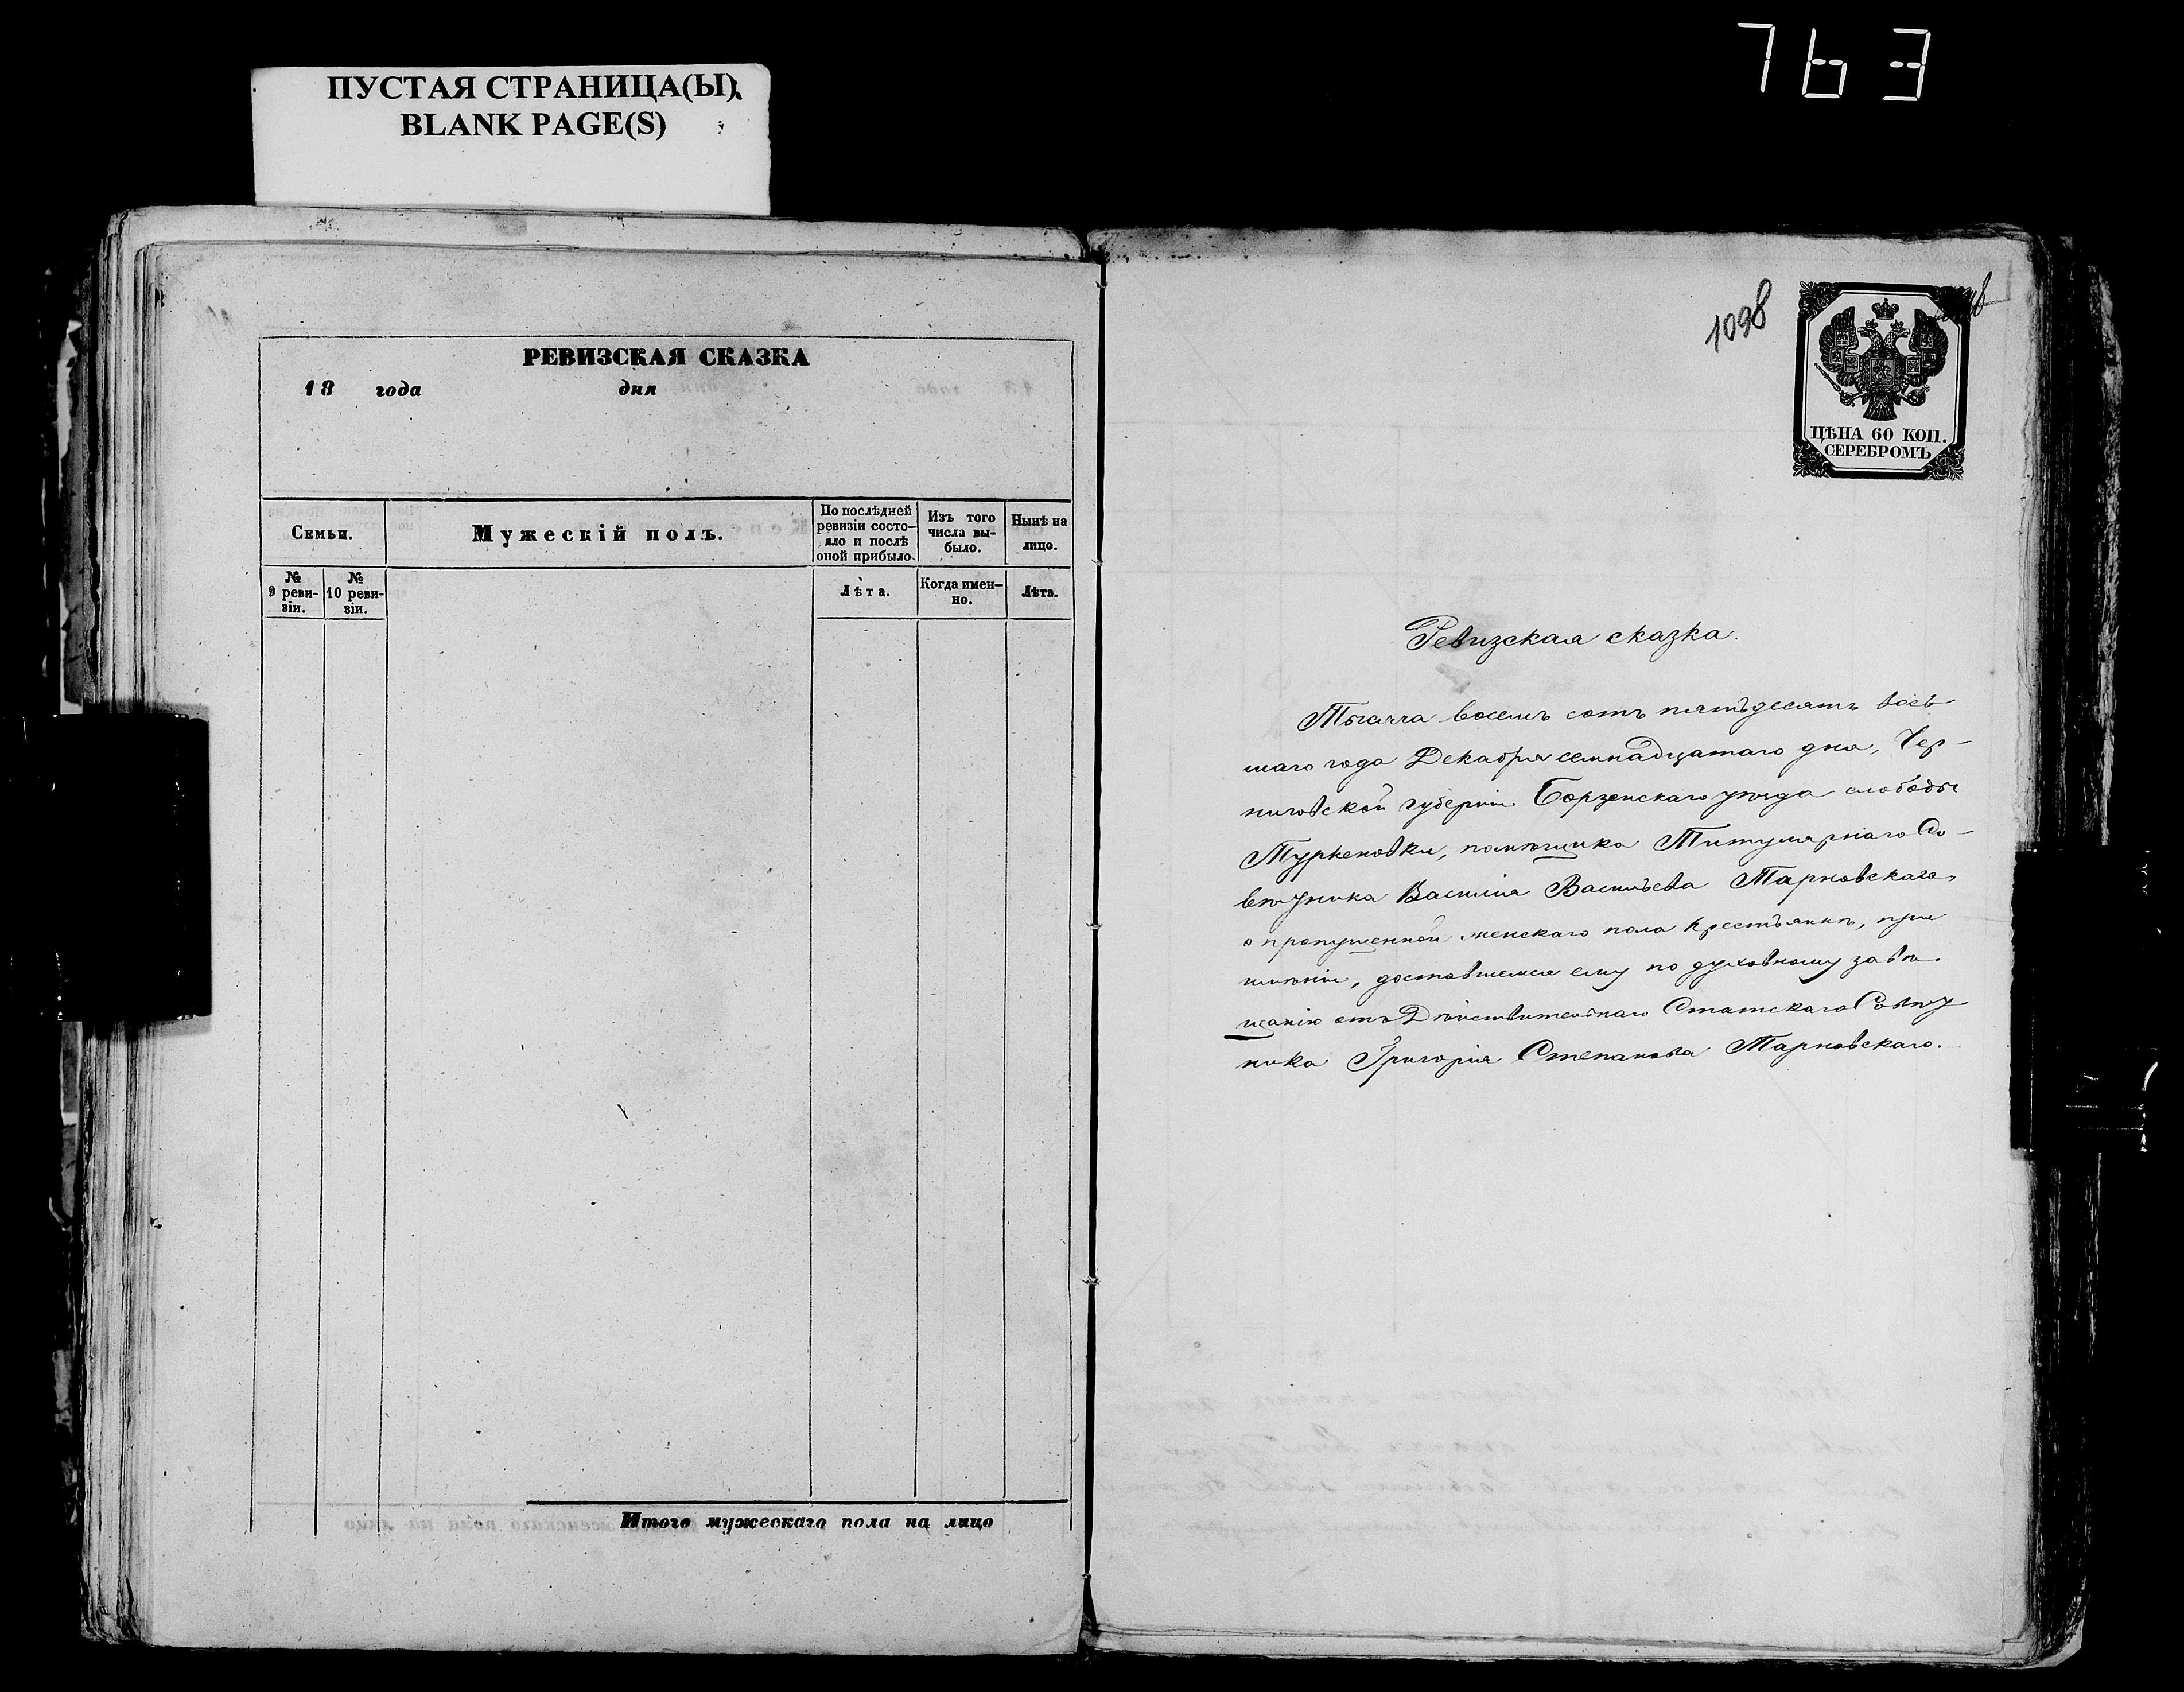 763
ПУСТАЯ СТРАНИЦА(Ы)
BLANK PAGE(S)
РЕВИЗСКАЯ СКАЗКА
18 года дня
Семьи.
Мужескій полъ.
По послѣдней
ревизіи состо-
яло и послѣ
оной прибыло.
Изъ того
числа вы-
было.
Нынѣ на
лицо.
№
9 реви-
зіи.
№
10 реви-
зіи.
Лѣта.
Когда имен-
но.
Лѣта.
Итого мужескаго пола на лицо
1098
ЦѢНА 60 КОП.
СЕРЕБРОМЪ
Ревизская сказка.
Тысяча восемь сотъ пятьдесятъ вось-
маго года Декабря семнадцатаго дня, Чер-
ниговской губерніи Борзенскаго уѣзда слободы
Туркеновки, помѣщика Титулярнаго Со-
вѣтника Василія Васильева Тарновскаго,
о пропущенной женскаго пола крестьянкѣ, при
имѣніи, доставшемся ему по духовному завѣ-
щанію отъ Дѣйствительнаго Статскаго Совѣт-
ника Григорія Степанова Тарновскаго.